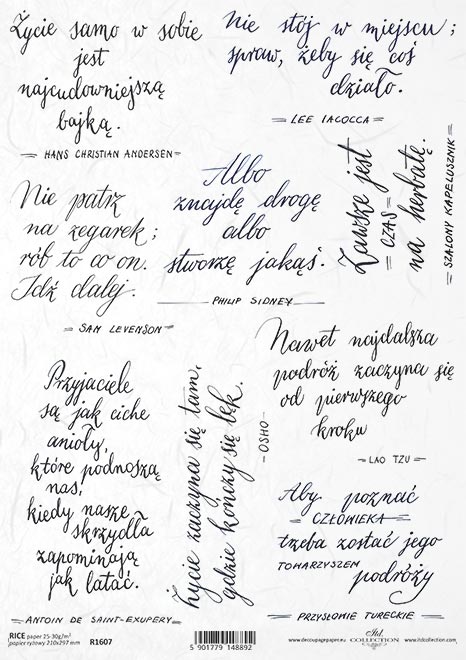 Życie samo w sobie
jest
najcudowniejszą
bajką.
HANS CHRISTIAN ANDERSEN
Nie stój w miejscu;
spraw, żeby się coś
działo.
LEE IACOCCA
Zawsze jest
CZAS
na herbatę.
SZALONY KAPELUSZNIK
Albo
znajdę drogę
albo
stworzę jakąś.
PHILIP SIDNEY
Nie patrz
na zegarek;
rób to co on.
Idź dalej.
SAM LEVENSON
Nawet najdalsza
podróż zaczyna się
od pierwszego
kroku
LAO TZU
Przyjaciele
są jak ciche
anioły,
które podnoszą
nas,
kiedy nasze
skrzydła
zapominają
jak latać.
ANTOIN DE SAINT-EXUPERY
Życie zaczyna się tam,
gdzie kończy się lęk.
OSHO
Aby poznać
CZŁOWIEKA
trzeba zostać jego
TOWARZYSZEM
podróży
PRZYSŁOWIE TURECKIE
RICE paper 25-30g/m²
papier ryżowy 210x297 mm
R1607
5 901779 148892
www.decoupagepaper.eu
itd.
COLLECTION
www.itdcollection.com